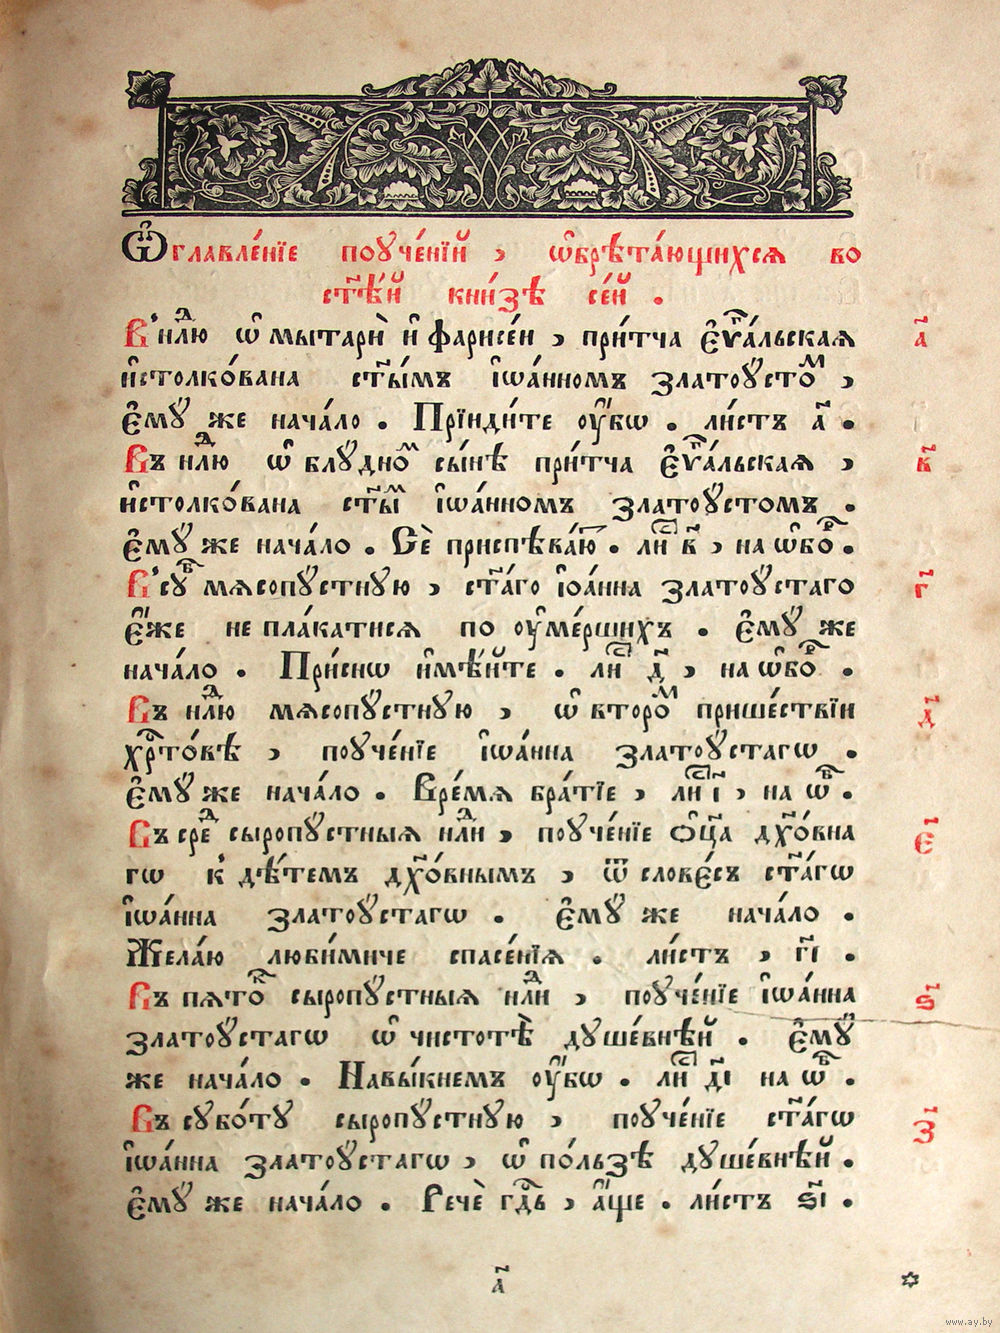 Ѡ҆главле́нїе поꙋче́нїй , ѡ҆брѣта́ющихсѧ во
ст҃ѣ́й кни́зѣ се́й .
В' нⷣлю ѡ҆ мытарѝ и҆ фарисе́и , при́тча є҆ѵⷢ҇а́льскаѧ а҃
и҆столко́вана ст҃ы́мъ і҆ѡа́нномъ златоꙋ́стоⷨ ,
є҆мꙋ́ же нача́ло . Прїиди́те ᲂу҆́бѡ . ли́стъ а҃ .
Въ нⷣлю ѡ҆ блꙋ́дноⷨ сы́нѣ при́тча є҆ѵⷢ҇а́льскаѧ , в҃
и҆столко́вана ст҃ыⷨ і҆ѡа́нномъ златоꙋ́стомъ .
є҆мꙋ́ же нача́ло . Сѐ приспѣва́ю҆ⷮ . лиⷭ҇ в҃ , на ѡ҆боⷬ҇ .
В' сꙋⷠ҇ мѧсопꙋ́стнꙋю , ст҃а́го і҆ѡа́нна златоꙋ́стаго г҃
є҆́же не пла́катисѧ по ᲂу҆ме́ршихъ . є҆мꙋ́ же
нача́ло . При́снѡ и҆мѣ́йте . лиⷭ҇ д҃ , на ѡ҆боⷬ҇ .
Въ нⷣлю мѧсопꙋ́стнꙋю , ѡ҆ второⷨ прише́ствїи д҃
хрⷭ҇то́вѣ , поꙋче́нїе і҆ѡа́нна златоꙋ́стагѡ .
є҆мꙋ́ же нача́ло . Вре́мѧ бра́тїе , лиⷭ҇ і҃ , на ѡ҆ⷠ .
Въ среⷣ сыропꙋ́стныѧ нⷣли , поꙋче́нїе ѻ҆ц҃а дх҃о́вна є҃
гѡ к' дѣ́темъ дх҃о́внымъ , ѿ слове́съ ст҃а́гѡ
і҆ѡа́нна златоꙋ́стагѡ . є҆мꙋ́ же нача́ло .
Жела́ю люби́миче спасе́нїѧ . ли́стъ , г҃і .
Въ пѧтоⷦ҇ сыропꙋ́стныѧ нⷣли , поꙋче́нїе і҆ѡа́нна ѕ҃
златоꙋ́стагѡ ѡ҆ чистотѣ̀ дꙋше́внѣй . є҆мꙋ́
же нача́ло . Навы́кнемъ ᲂу҆́бѡ . лиⷭ҇ д҃і на ѡ҆ⷠ .
Въ сꙋбо́тꙋ сыропꙋ́стнꙋю , поꙋче́нїе ст҃а́гѡ з҃
і҆ѡа́нна златоꙋ́стагѡ , ѡ҆ по́льзѣ дꙋше́внѣй .
є҆мꙋ́ же нача́ло . Речѐ гдⷭ҇ь , а҆́ще . ли́стъ ѕ҃і .
а҃
www.ay.by